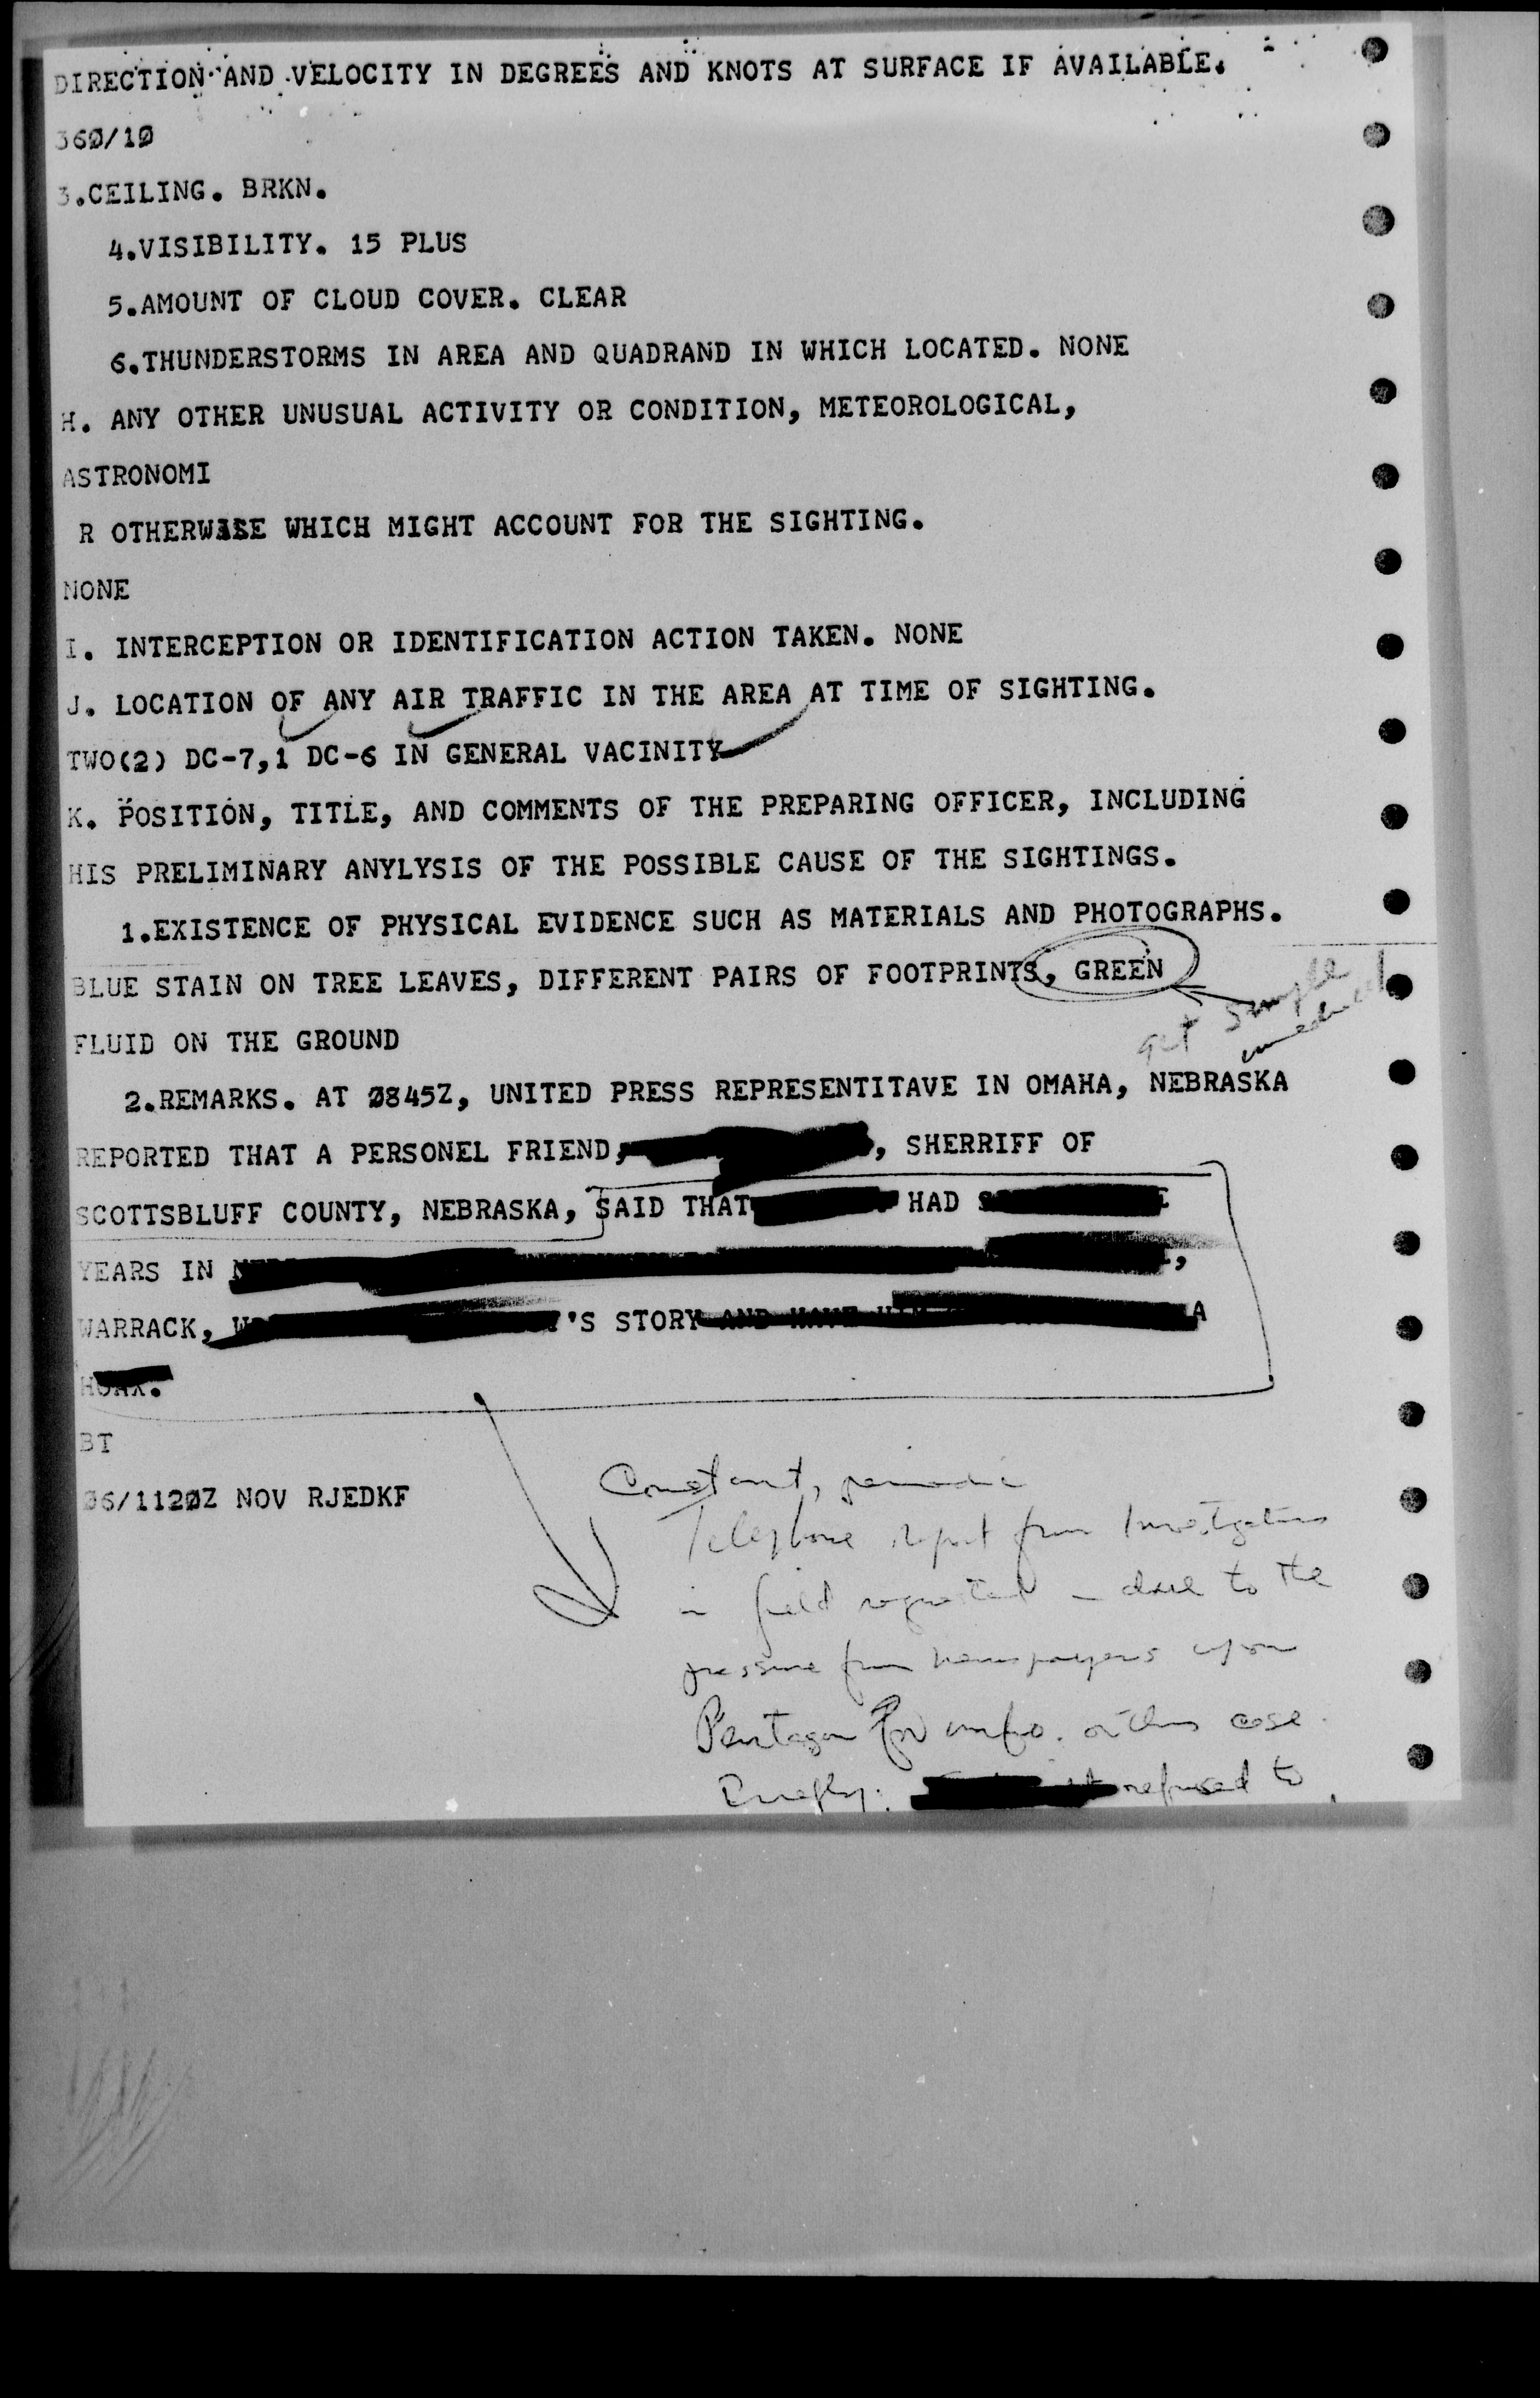 DIRECTION AND VELOCITY IN DEGREES AND KNOTS AT SURFACE IF AVAILABLE.
360/10
3.CEILING. BRKN.
4.VISIBILITY. 15 PLUS
5.AMOUNT OF CLOUD COVER. CLEAR
6.THUNDERSTORMS IN AREA AND QUADRAND IN WHICH LOCATED. NONE
H. ANY OTHER UNUSUAL ACTIVITY OR CONDITION, METEOROLOGICAL,
ASTRONOMI
R OTHERWISE WHICH MIGHT ACCOUNT FOR THE SIGHTING.
NONE
I. INTERCEPTION OR IDENTIFICATION ACTION TAKEN. NONE
J. LOCATION OF ANY AIR TRAFFIC IN THE AREA AT TIME OF SIGHTING.
TWO(2) DC-7,1 DC-6 IN GENERAL VACINITY
K. POSITION, TITLE, AND COMMENTS OF THE PREPARING OFFICER, INCLUDING
HIS PRELIMINARY ANYLYSIS OF THE POSSIBLE CAUSE OF THE SIGHTINGS.
1.EXISTENCE OF PHYSICAL EVIDENCE SUCH AS MATERIALS AND PHOTOGRAPHS.
BLUE STAIN ON TREE LEAVES, DIFFERENT PAIRS OF FOOTPRINTS, GREEN
get sample
FLUID ON THE GROUND
2.REMARKS. AT 0845Z, UNITED PRESS REPRESENTITAVE IN OMAHA, NEBRASKA
REPORTED THAT A PERSONEL FRIEND, , SHERRIFF OF
SCOTTSBLUFF COUNTY, NEBRASKA, SAID THAT HAD
YEARS IN
WARRACK, 'S STORY AND HAVE A
HOAX.
BT
06/1120Z NOV RJEDKF
Constant, periodic
Telephone report from Investigators
in field requested - due to the
pressure from newspapers upon
Pentagon for info. on this case.
Briefly: refused to